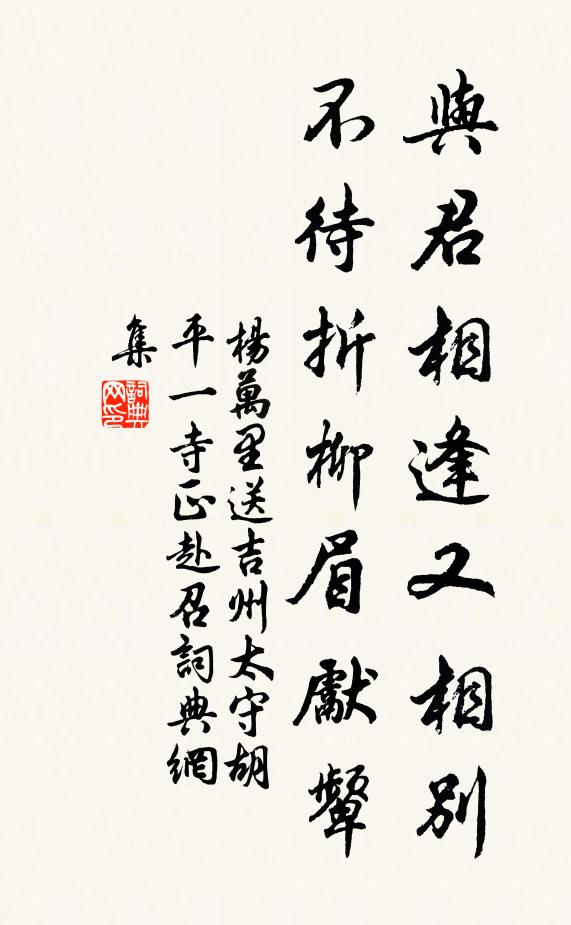 與君相逢又相別
不待折柳眉獻顰
楊萬里送吉州太守胡
平一寺正赴召詞典網
集
詞典网印